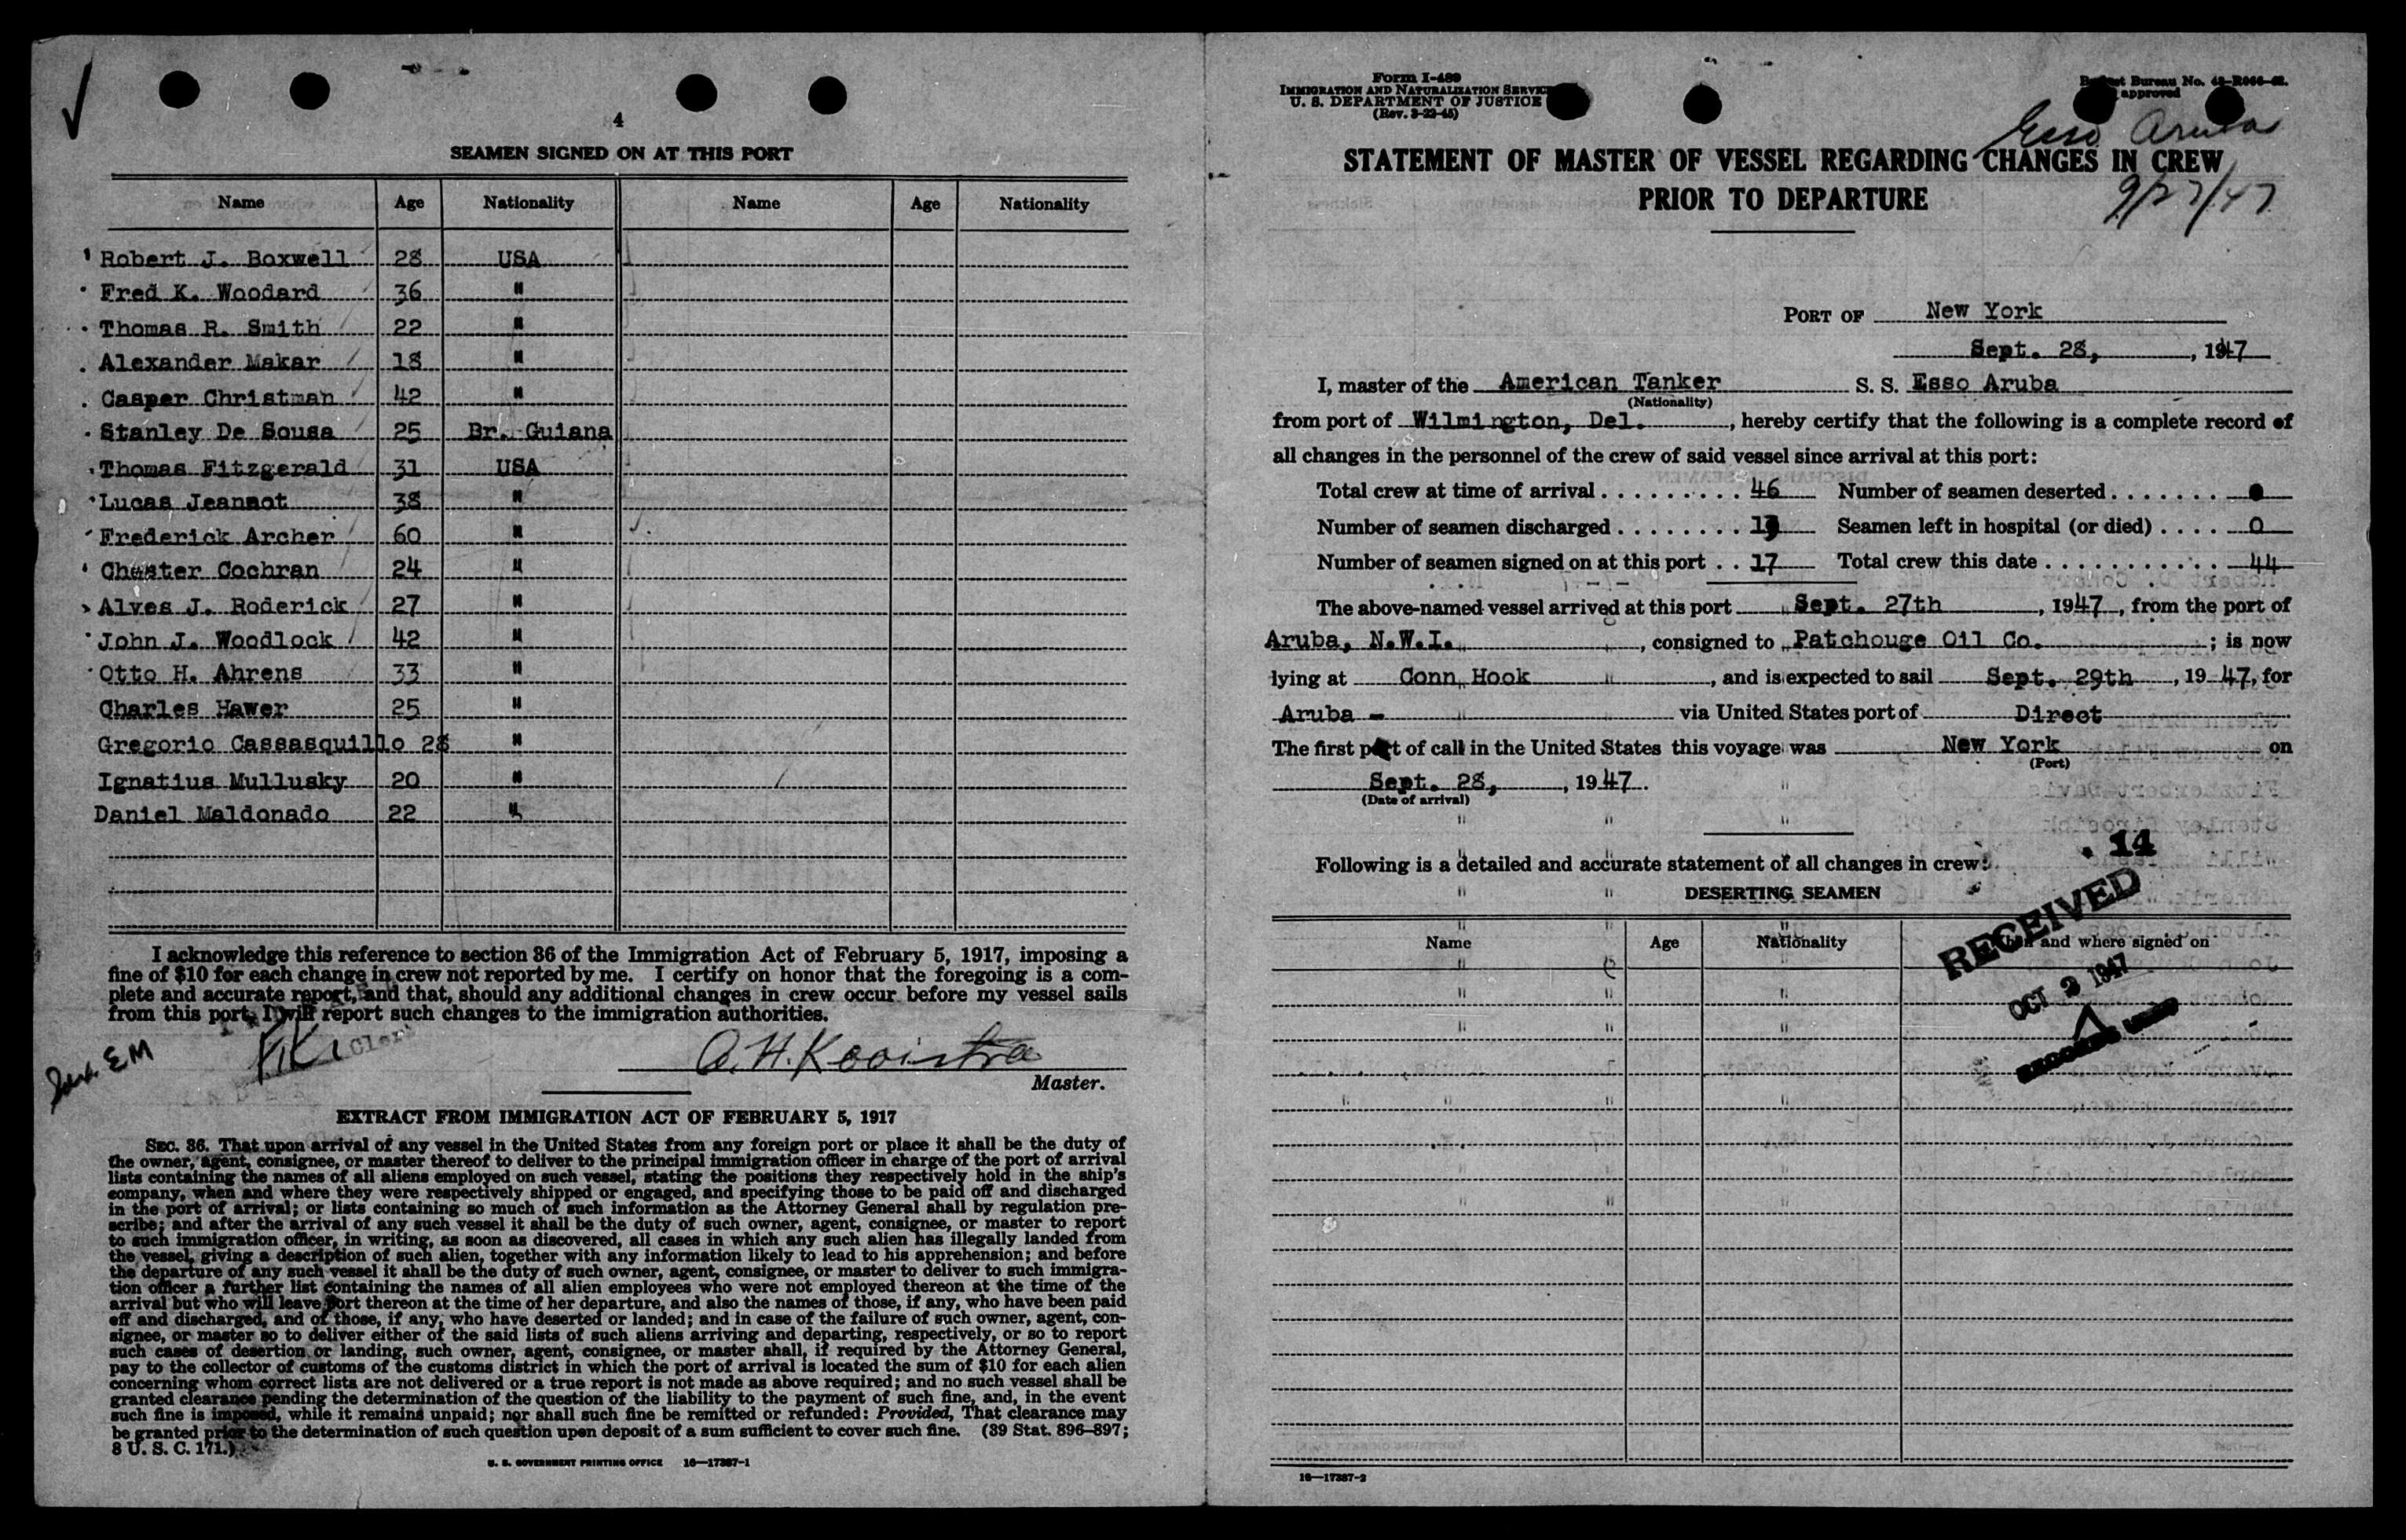 4
SEAMEN SIGNED ON AT THIS PORT
Name Age Nationality Name Age Nationality
Robert J. Boxwell 28 USA
Fred K. Woodard 36 "
Thomas R. Smith 22 "
Alexander Makar 18 "
Casper Christman 42 "
Stanley De Sousa 25 Br. Guiana
Thomas Fitzgerald 31 USA
Lucas Jeannot 38 "
Frederick Archer 60 "
Chester Cochran 24 "
Alves J. Roderick 27 "
John J. Woodlock 42 "
Otto H. Ahrens 33 "
Charles Hawer 25 "
Gregorio Cassasquillo 28 "
Ignatius Mullusky 20 "
Daniel Maldonado 22 "
I acknowledge this reference to section 36 of the Immigration Act of February 5, 1917, imposing a
fine of $10 for each change in crew not reported by me. I certify on honor that the foregoing is a com-
plete and accurate report, and that, should any additional changes in crew occur before my vessel sails
from this port, I will report such changes to the immigration authorities.
Clerk
EM
A. H. Kooistra
Master.
EXTRACT FROM IMMIGRATION ACT OF FEBRUARY 5, 1917
SEC. 36. That upon arrival of any vessel in the United States from any foreign port or place it shall be the duty of
the owner, agent, consignee, or master thereof to deliver to the principal immigration officer in charge of the port of arrival
lists containing the names of all aliens employed on such vessel, stating the positions they respectively hold in the ship's
company, when and where they were respectively shipped or engaged, and specifying those to be paid off and discharged
in the port of arrival; or lists containing so much of such information as the Attorney General shall by regulation pre-
scribe; and after the arrival of any such vessel it shall be the duty of such owner, agent, consignee, or master to report
to such immigration officer, in writing, as soon as discovered, all cases in which any such alien has illegally landed from
the vessel, giving a description of such alien, together with any information likely to lead to his apprehension; and before
the departure of any such vessel it shall be the duty of such owner, agent, consignee, or master to deliver to such immigra-
tion officer a further list containing the names of all alien employees who were not employed thereon at the time of the
arrival but who will leave port thereon at the time of her departure, and also the names of those, if any, who have been paid
off and discharged, and of those, if any, who have deserted or landed; and in case of the failure of such owner, agent, con-
signee, or master so to deliver either of the said lists of such aliens arriving and departing, respectively, or so to report
such cases of desertion or landing, such owner, agent, consignee, or master shall, if required by the Attorney General,
pay to the collector of customs of the customs district in which the port of arrival is located the sum of $10 for each alien
concerning whom correct lists are not delivered or a true report is not made as above required; and no such vessel shall be
granted clearance pending the determination of the question of the liability to the payment of such fine, and, in the event
such fine is imposed, while it remains unpaid; nor shall such fine be remitted or refunded: Provided, That clearance may
be granted prior to the determination of such question upon deposit of a sum sufficient to cover such fine. (39 Stat. 896–897;
8 U. S. C. 171.)
U. S. GOVERNMENT PRINTING OFFICE 16—17387-1
Form I-489
IMMIGRATION AND NATURALIZATION SERVICE
U. S. DEPARTMENT OF JUSTICE
(Rev. 3-22-45)
Budget Bureau No. 43-R066-42.
approved
Esso Aruba
STATEMENT OF MASTER OF VESSEL REGARDING CHANGES IN CREW
PRIOR TO DEPARTURE
9/27/47
PORT OF New York
Sept. 28, , 1947
I, master of the American Tanker S. S. Esso Aruba
(Nationality)
from port of Wilmington, Del. , hereby certify that the following is a complete record of
all changes in the personnel of the crew of said vessel since arrival at this port:
Total crew at time of arrival . . . . . . . . . . 46 Number of seamen deserted . . . . . . . 0
Number of seamen discharged . . . . . . . . 19 Seamen left in hospital (or died) . . . . 0
Number of seamen signed on at this port . . 17 Total crew this date . . . . . . . . . . . . 44
The above-named vessel arrived at this port Sept. 27th , 1947 , from the port of
Aruba, N.W.I. , consigned to Patchouge Oil Co. ; is now
lying at Conn Hook , and is expected to sail Sept. 29th , 19 47, for
Aruba - via United States port of Direct
The first port of call in the United States this voyage was New York on
(Port)
Sept. 28, , 1947.
(Date of arrival)
14
Following is a detailed and accurate statement of all changes in crew:
DESERTING SEAMEN
Name Age Nationality When and where signed on
RECEIVED
OCT 2 1947
RECORDS UNIT
16—17387-2